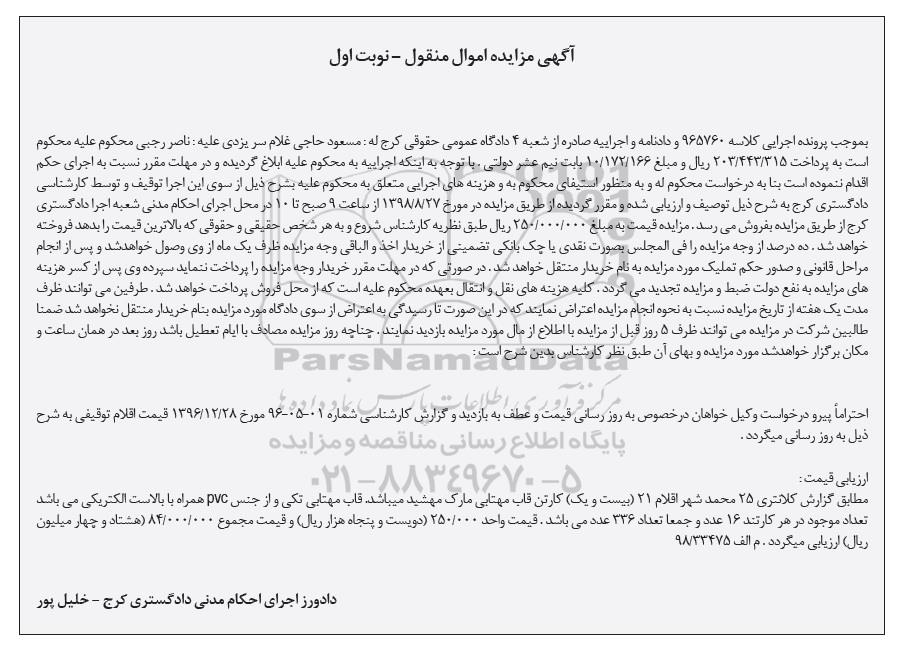 آگهی مزایده اموال منقول - نوبت اول
بموجب پرونده اجرایی کلاسه ۹۶۵۷۶۰ و دادنامه و اجراییه صادره از شعبه ۴ دادگاه عمومی حقوقی کرج له : مسعود حاجی غلام سر یزدی علیه : ناصر رجبی محکوم علیه محکوم
است به پرداخت ۲۰۳/۴۴۳/۳۱۵ ریال و مبلغ ۱۰/۱۷۲/۱۶۶ بابت نیم عشر دولتی . با توجه به اینکه اجراییه به محکوم علیه ابلاغ گردیده و در مهلت مقرر نسبت به اجرای حکم
اقدام ننموده است بنا به درخواست محکوم له و به منظور استیفای محکوم به و هزینه های اجرایی متعلق به محکوم علیه بشرح ذیل از سوی این اجرا توقیف و توسط کارشناسی
دادگستری کرج به شرح ذیل توصیف و ارزیابی شده و مقرر گردیده از طریق مزایده در مورخ ۱۳۹۸/۸/۲۷ از ساعت ۹ صبح تا ۱۰ در محل اجرای احکام مدنی شعبه اجرا دادگستری
کرج از طریق مزایده بفروش می رسد . مزایده قیمت به مبلغ ۲۵۰/۰۰۰/۰۰۰ ریال طبق نظریه کارشناس شروع و به هر شخص حقیقی و حقوقی که بالاترین قیمت را بدهد فروخته
خواهد شد . ده درصد از وجه مزایده را فی المجلس بصورت نقدی یا چک بانکی تضمینی از خریدار اخذ و الباقی وجه مزایده ظرف یک ماه از وی وصول خواهدشد و پس از انجام
مراحل قانونی و صدور حکم تملیک مورد مزایده به نام خریدار منتقل خواهد شد . در صورتی که در مهلت مقرر خریدار وجه مزایده را پرداخت ننماید سپرده وی پس از کسر هزینه
های مزایده به نفع دولت ضبط و مزایده تجدید می گردد . کلیه هزینه های نقل و انتقال بعهده محکوم علیه است که از محل فروش پرداخت خواهد شد . طرفین می توانند ظرف
مدت یک هفته از تاریخ مزایده نسبت به نحوه انجام مزایده اعتراض نمایند که در این صورت تا رسیدگی به اعتراض از سوی دادگاه مورد مزایده بنام خریدار منتقل نخواهد شد ضمنا
طالبین شرکت در مزایده می توانند ظرف ۵ روز قبل از مزایده با اطلاع از مال مورد مزایده بازدید نمایند . چناچه روز مزایده مصادف با ایام تعطیل باشد روز بعد در همان ساعت و
مکان برگزار خواهدشد مورد مزایده و بهای آن طبق نظر کارشناس بدین شرح است :
ParsNamadData
مرکز فرآوری اطلاعات پارس نماد داده ها
احتراماً پیرو درخواست وکیل خواهان درخصوص به روز رسانی قیمت و عطف به بازدید و گزارش کارشناسی شماره ۰۱-۰۵-۹۶ مورخ ۱۳۹۶/۱۲/۲۸ قیمت اقلام توقیفی به شرح
ذیل به روز رسانی میگردد .
پایگاه اطلاع رسانی مناقصه و مزایده
ارزیابی قیمت :
۰۲۱-۸۸۳۴۹۶۷۰-۵
مطابق گزارش کلانتری ۲۵ محمد شهر اقلام ۲۱ (بیست و یک) کارتن قاب مهتابی مارک مهشید میباشد. قاب مهتابی تکی و از جنس pvc همراه با بالاست الکتریکی می باشد
تعداد موجود در هر کارتند ۱۶ عدد و جمعا تعداد ۳۳۶ عدد می باشد . قیمت واحد ۲۵۰/۰۰۰ (دویست و پنجاه هزار ریال) و قیمت مجموع ۸۴/۰۰۰/۰۰۰ (هشتاد و چهار میلیون
ریال) ارزیابی میگردد . م الف ۹۸/۳۳۴۷۵
دادورز اجرای احکام مدنی دادگستری کرج - خلیل پور